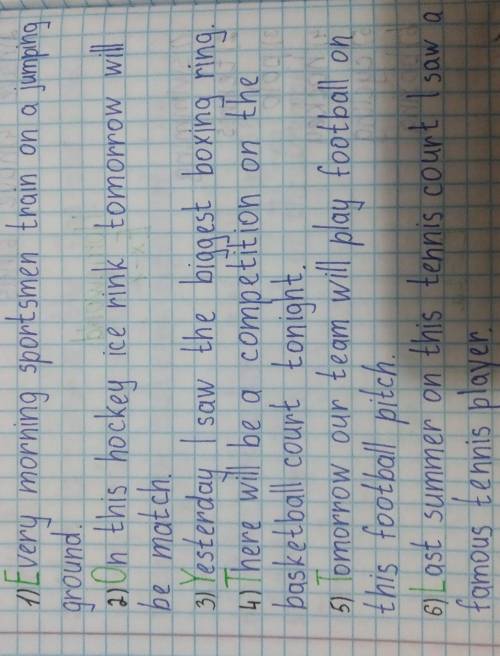 1) Every morning sportsmen train on a jumping
ground.
2) On this hockey ice rink tomorrow will
be match.
3) Yesterday I saw the biggest boxing ring.
4) There will be a competition on the
basketball court tonight.
5) Tomorrow our team will play football on
this football pitch.
6) Last summer on this tennis court I saw a
famous tennis player.